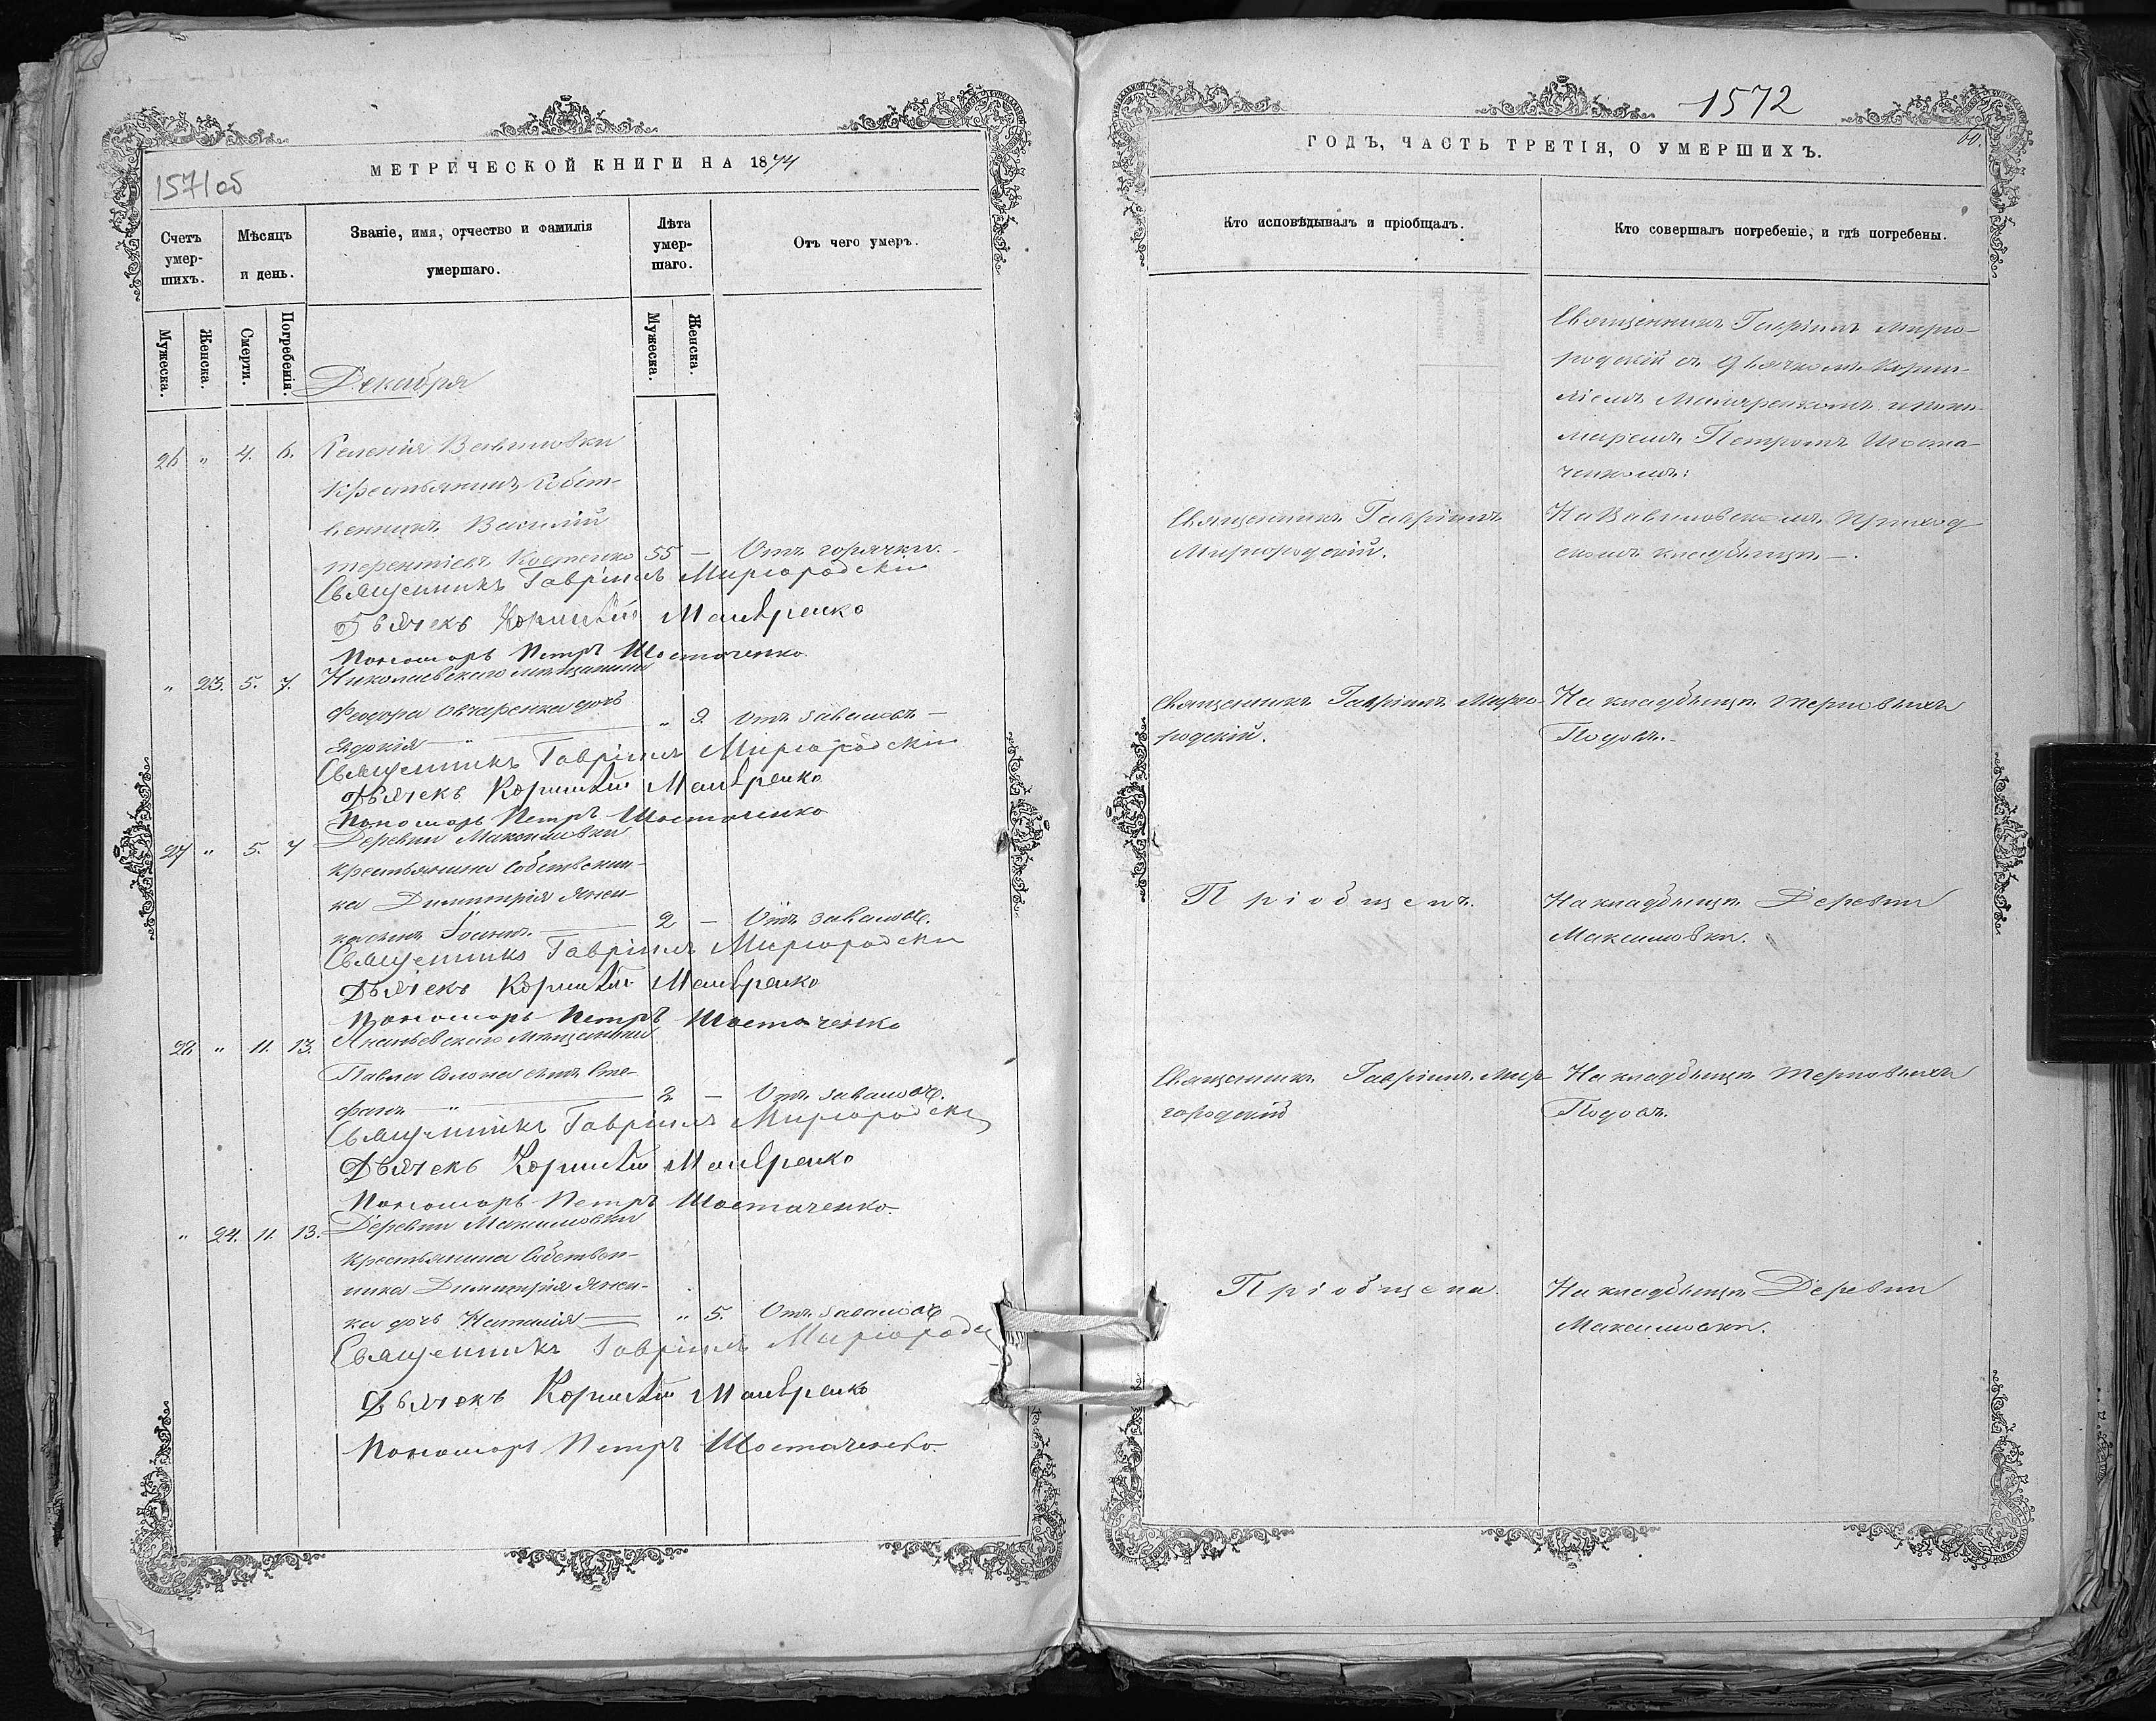 1571об
МЕТРИЧЕСКОЙ КНИГИ НА 1874
Счетъ умер-шихъ.
Мѣсяцъ и день.
Званіе, имя, отчество и фамилія умершаго.
Лѣта умер-шаго.
Отъ чего умеръ.
Мужеска.
Женска.
Смерти.
Погребенія.
Мужеска.
Женска.
Декабря
26 " 4. 6. Селенія Вавиловки
Крестьянинъ Собст-
венникъ Василій
терентіевъ Костенко 55 — Отъ горячки.
Священникъ Гавріилъ Миргородскій
Дьячекъ Корнилій Макаренко
Пономарь Петръ Шостаченко
" 23. 5. 7. Николаевскаго мѣщанина
Феодора Овчаренка дочь
Евдокія " 9. Отъ давловъ
Священникъ Гавріилъ Миргородскій
Дьячекъ Корнилій Макаренко
Пономарь Петръ Шостаченко
27 " 5. 7 Деревни Максимовки
крестьянина Собственни-
ка Димитрія
сынъ Іоаннъ. 2 —
Священникъ Гавріилъ Миргородскій
Дьячекъ Корнилій Макаренко
Пономарь Петръ Шостаченко
28 " 11. 13. мѣщанина
Павла сынъ Сте-
фанъ " 2 —
Священникъ Гавріилъ Миргородскій
Дьячекъ Корнилій Макаренко
Пономарь Петръ Шостаченко
" 24. 11. 13. Деревни Максимовки
крестьянина Собствен-
ника Димитрія
ка дочь Наталія " 5.
Священникъ Гавріилъ
Дьячекъ Корнилій Макаренко
Пономарь Петръ Шостаченко
1572
60.
ГОДЪ, ЧАСТЬ ТРЕТІЯ, О УМЕРШИХЪ.
Кто исповѣдывалъ и пріобщалъ.
Кто совершалъ погребеніе, и гдѣ погребены.
Священникъ Гавріилъ Мирго-
родскій съ Дьячкомъ Корни-
ліемъ Макаренкомъ и поно-
маремъ Петромъ Шоста-
ченкомъ:
Священникъ Гавріилъ
Миргородскій.
На Вавиловскомъ приход
скомъ кладбищѣ —.
Священникъ Гавріилъ Мирго-
родскій.
На кладбищѣ терновыхъ
Подовъ.
Пріобщенъ.
На кладбищѣ Деревни
Максимовки.
Священникъ Гавріилъ Мир
городскій
На кладбищѣ терновыхъ
Подовъ.
Пріобщена.
На кладбищѣ Деревни
Максимовки.